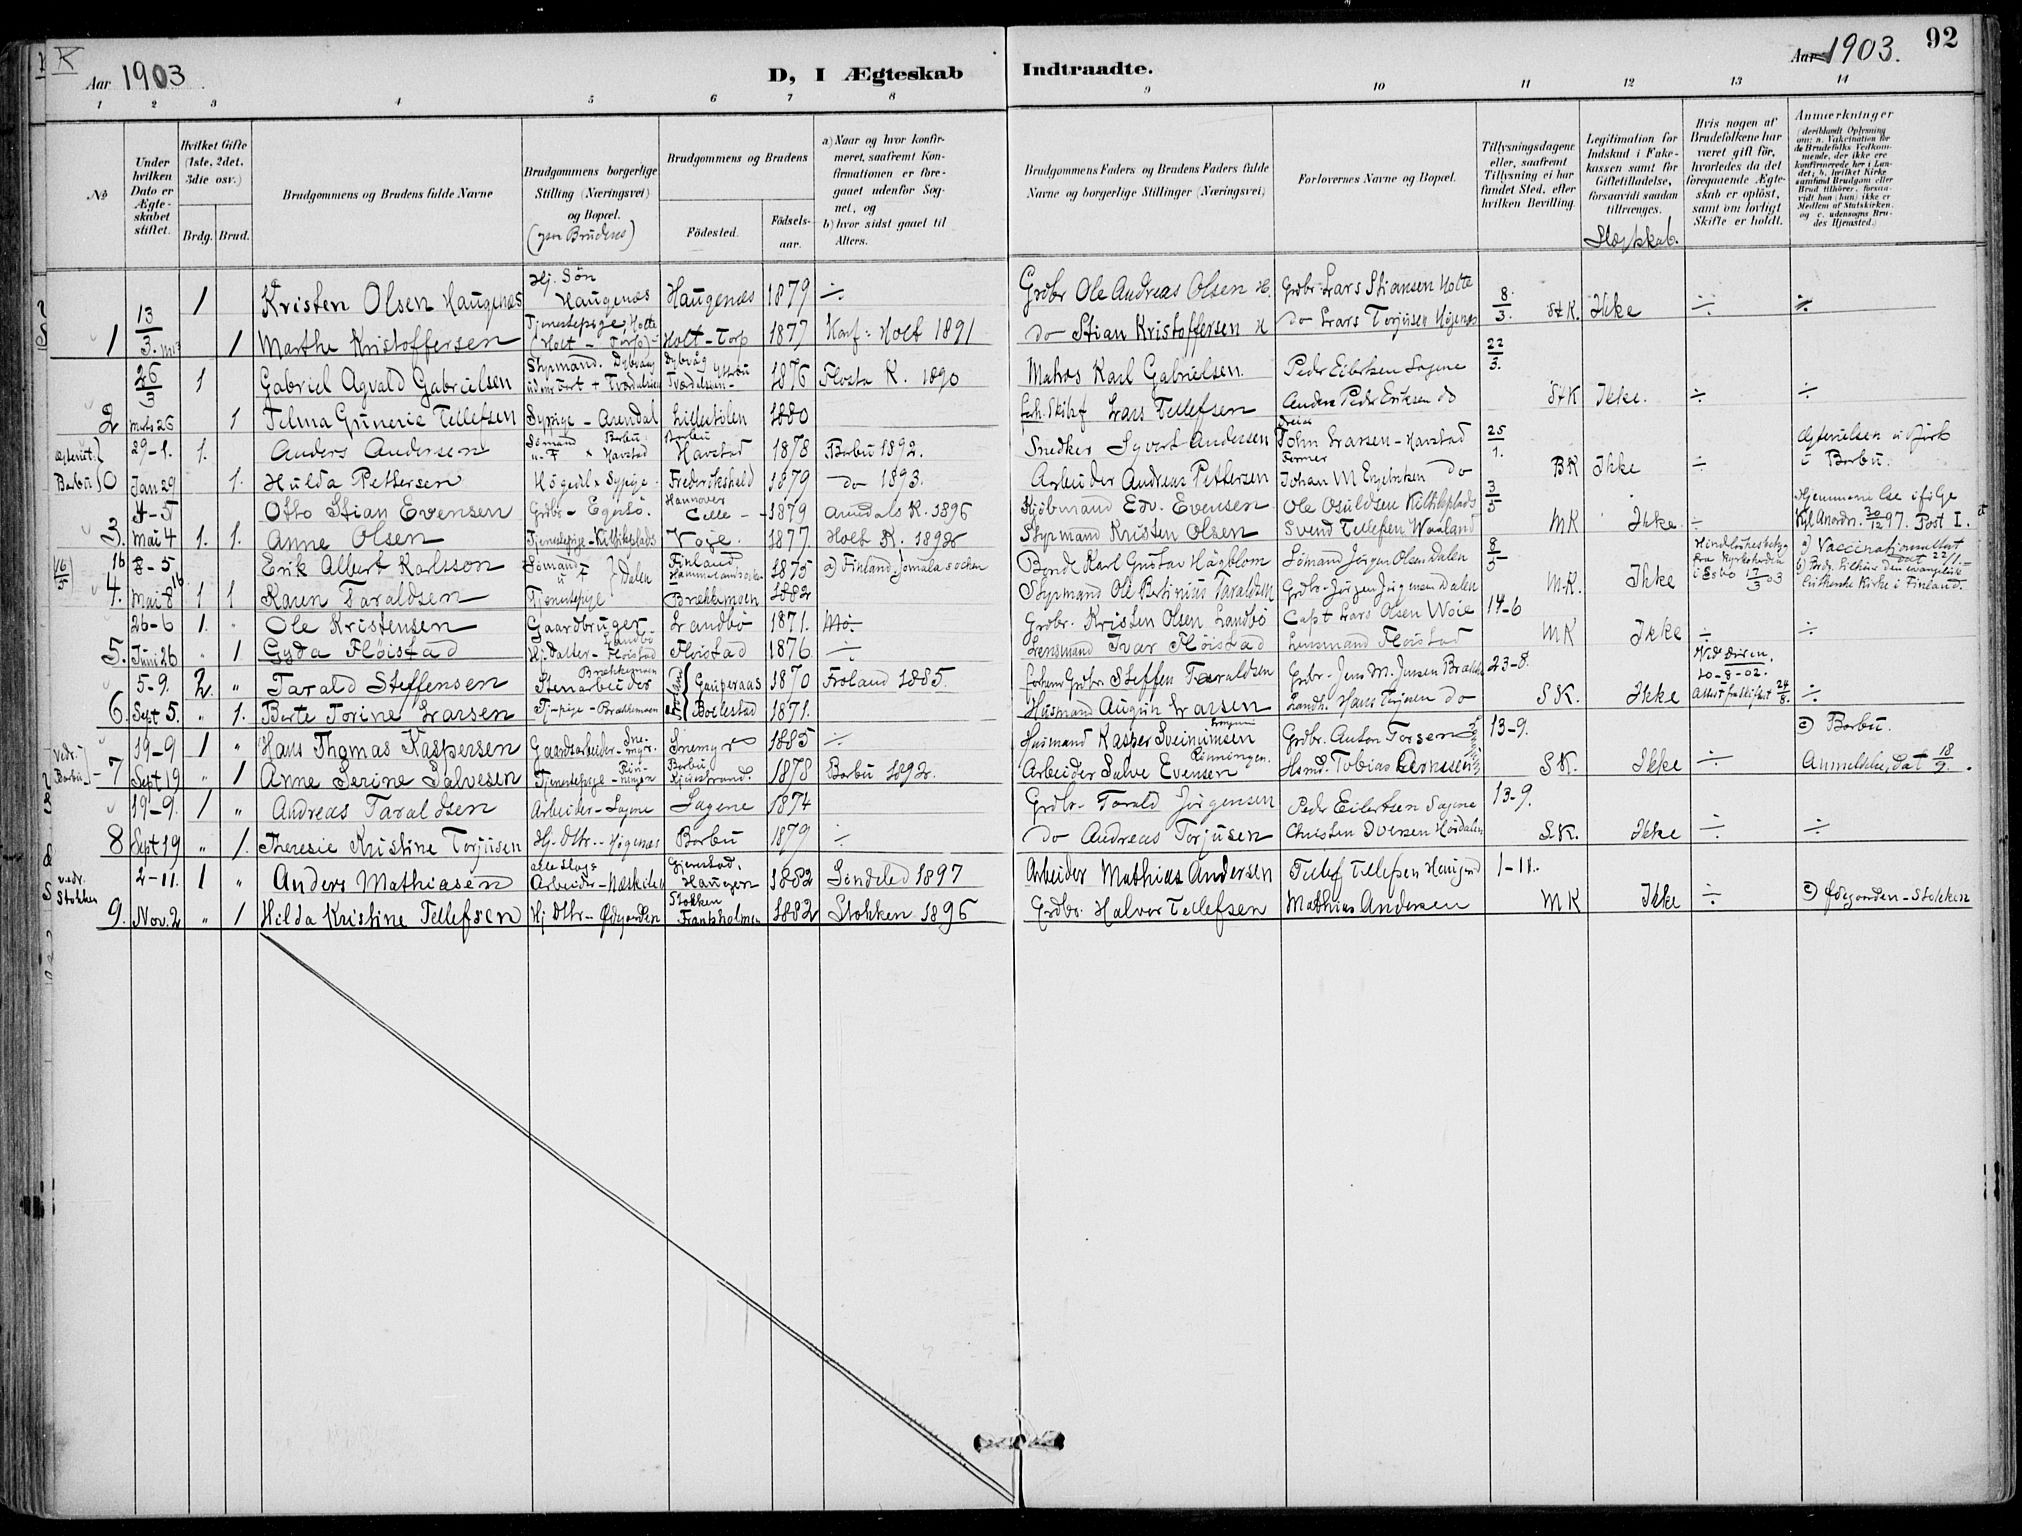 K Aar 1903 D, I Ægteskab Indtraadte. Aar 1903. 92
1 2 3 4 5 6 7 8 9 10 11 12 13 14
No
Under hvilken Dato er Ægteskabet stiftet.
Hvilket Gifte (1ste, 2det, 3die osv.)
Brdg. Brud.
Brudgommens og Brudens fulde Navne
Brudgommens borgerlige Stilling (Næringsvei) og Bopæl.
(paa Brudens)
Brudgommens og Brudens
Fødested. Fødsels-aar.
a) Naar og hvor konfirmeret, saafremt Konfirmationen er foregaaet udenfor Sognet, og
b) hvor sidst gaaet til Alters.
Brudgommens Faders og Brudens Faders fulde Navne og borgerlige Stillinger (Næringsvei)
Forlovernes Navne og Bopæl.
Tillysningsdagene eller, saafremt Tillysning ei har fundet Sted, efter hvilken Bevilling.
Legitimation for Indskud i Enkekassen samt for Giftetilladelse, forsaavidt saadan tiltrænges.
Slægtskab.
Hvis nogen af Brudefolkene har været gift før, hvorledes da det foregaaende Ægteskab er opløst, samt om lovligt Skifte er holdt.
Anmærkninger
(deriblandt Oplysning om: a. Vakcination for de Brudefolks Vedkommende, der ikke ere konfirmerede her i Landet; b. hvilket Kirkesamfund Brudgom eller Brud tilhører, forsaavidt han (hun) ikke er Medlem af Statskirken, og c. udensogns Brudes Hjemsted.)
13/3 1 Kristen Olsen Haugenæs Hj. Søn Haugenæs Haugenæs 1879 ÷ Grdbr Ole Andreas Olsen H. Grdbr Lars Stiansen Holte 8/3. St K. Ikke ÷ ÷
1 1 Marthe Kristoffersen Tjenestepige, Holte (Holt - Torp) Holt - Torp 1877 Konf. Holt 1891 do Stian Kristoffersen H do Lars Torjusen Høgenæs
26/3 1 Gabriel Agvald Gabrielsen Styrmand. Dybvaag Dybvåg 1876 Flosta K. 1890 Matros Karl Gabrielsen Peder Eilertsen Sagene 22/3. St K Ikke. ÷ ÷
2 Marts 26 1 Telma Gunerie Tellefsen Sypige - Arendal Lilleholen 1880 Lars Tellefsen Anders Peder Eriksen do
Barbu 29-1. 1. Anders Andersen Sømand Barbu Havstad Barbu Havstad 1878 Barbu 1892. Snedker Syvert Andersen John Larsen - Havstad 25/1. BK Ikke ÷
0 Jan 29 1. Hulda Pettersen Sypige Frederikshald 1879 do 1893. Arbeider Andreas Pettersen Johan M Engebretsen do i Barbu.
4-5 Otto Stian Evensen Grdbr - Egersø. Hannover Celle 1879 Arendals K. 1896 Kjøbmand Edv. Evensen Ole Osuldsen Kilthiplads 3/5 MK Ikke. ÷
3. Mai 4 1. 1. Anne Olsen Tjenestepige - Kilthiplads Voje. 1877. Holt K. 1892 Styrmand Kristen Olsen Svend Tellefsen Waaland Kgl. Anordn. 30/12 97. Post I.
16/5 16 8-5 Erik Albert Karlsson Sømand Dalen Finland, Hammerlandsoken 1875 a) Finland, Jomala socken Bonde Karl Gustav Hägblom Sømand Jørgen Olsen Dalen 8/5 M-K. Ikke 17/3 03 a) Vaccinationsattest dat 22/1.
4. Mai 8 16 1 1 Karen Taraldsen Tjenestepige Brækkemoen 1882 Styrmand Ole Bertinius Taraldsen Grdbr. Jørgen Jørgensen Dalen Kirke i Finland.
26-6 1. Ole Kristensen Gaardbruger Landbø Landbø 1871. Mo. Grdbr. Kristen Olsen Landbø Capt Lars Olsen Woie 14-6 MK Ikke ÷ ÷
5. Juni 26 " 1 Gyda Fløistad Hj. Datter - Fløistad Fløistad 1876 ÷ Lensmand Ivar Fløistad Lensmand Fløistad
5-9. 2. " Tarald Steffensen Stenarbeider Brækkemoen Froland Gauperaas 1870 Froland 1885. Grdbr. Steffen Taraldsen Grdbr. Jens M. Jensen Brække 23-8. S K. Ikke Ved Døden, 20-8-02. ÷
6. Sept 5. " 1. Berte Torine Larsen Tj-pige - Brækkemoen Bollestad 1871. Husmand August Larsen Landh. Hans Terjesen do 24/8.
Vedr. Barbu 19-9 1 " Hans Thomas Kaspersen Gaardsarbeider - Snemyr. Snemyr 1885 ÷ Husmand Kasper Sveinumsen Grdbr. Anton Torsen 13-9. S K. Ikke ÷ c) Barbu.
7 Sept 19 " 1 Anne Serine Salvesen Tjenestepige - Rønningen Barbu 1878 Barbu 1892. Arbeider Salve Evensen Rønningen. Tobias Anmeldelse, dat 18/9.
19-9. 1 " Andreas Taraldsen Arbeider - Sagene Sagene 1874 Grdbr. Tarald Jørgensen Peder Eilertsen Sagene 13-9. S K. Ikke ÷ ÷
8 Sept 19 " 1. Theresie Kristine Torjusen Hj. Dttr - Høgenæs Barbu 1879 ÷ do Andreas Torjusen Christen Iversen
vedr. Stokken 2-11. 1 " Anders Mathiasen Arbeider - Næskilen Gjerstad, Haugen 1882 Søndeled 1897 Arbeider Mathias Andersen Tellef Tellefsen 1-11. MK Ikke ÷ c) Ødegaarden - Stokken
9. Nov. 2 " 1 Hilda Kristine Tellefsen Hj. Dttr - Ødegaarden Stokken Frankholmen 1882 Stokken 1896 Grdbr. Halvor Tellefsen Mathias Andersen